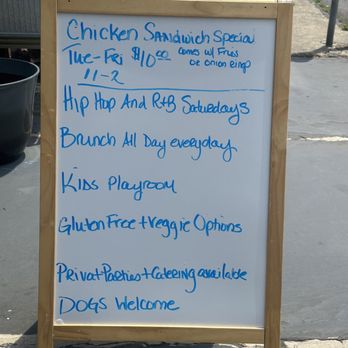 Chicken Sandwich Special
Tue-Fri $10.00 comes w/ Fries
or onion rings
11-2
Hip Hop And R+B Saturdays
Brunch All Day everyday
Kids Playroom
Gluten Free + Veggie Options
Privat Parties + Catering available
DOGS Welcome